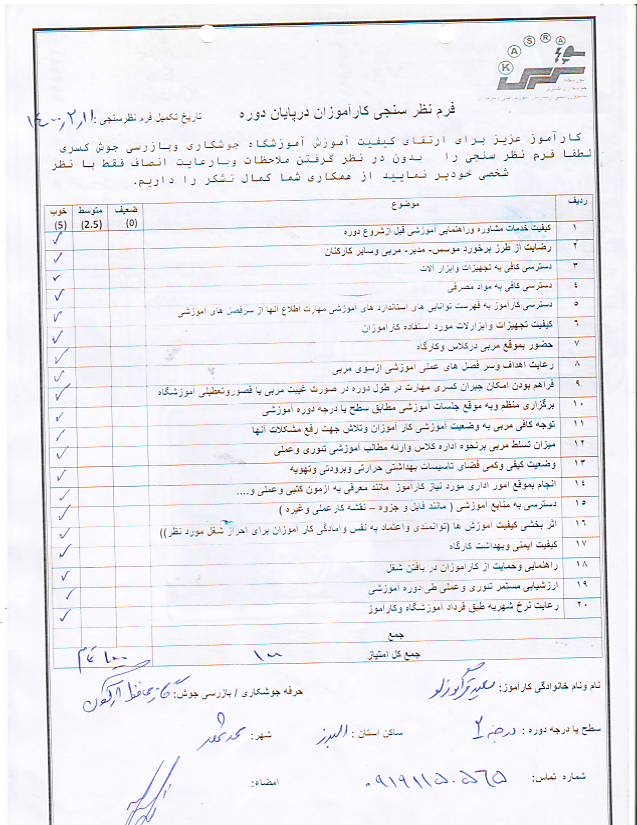 KASRA
فرم نظر سنجی کارآموزان درپایان دوره
تاریخ تکمیل فرم نظرسنجی : ۱۴۰۰,۲,۱۱
کارآموز عزیز برای ارتقای کیفیت آموزش آموزشگاه جوشکاری وبازرسی جوش کسری
لطفا فرم نظر سنجی را بدون در نظر گرفتن ملاحظات وبارعایت انصاف فقط با نظر
شخصی خودپر نمایید از همکاری شما کمال تشکر را داریم.
ردیف موضوع ضعیف (0) متوسط (2.5) خوب (5)
۱ کیفیت خدمات مشاوره وراهنمایی آموزشی قبل ازشروع دوره ✓
۲ رضایت از طرز برخورد موسس- مدیر- مربی وسایر کارکنان ✓
۳ دسترسی کافی به تجهیزات وابزار آلات ✓
۴ دسترسی کافی به مواد مصرفی ✓
۵ دسترسی کارآموز به فهرست توانایی های استاندارد های آموزشی مهارت اطلاع آنها از سرفصل های آموزشی ✓
۶ کیفیت تجهیزات وابزارلات مورد استفاده کارآموزان ✓
۷ حضور بموقع مربی درکلاس وکارگاه ✓
۸ رعایت اهداف وسر فصل های عملی آموزشی ازسوی مربی ✓
۹ فراهم بودن امکان جبران کسری مهارت در طول دوره در صورت غیبت مربی یا قصوروتعطیلی آموزشگاه ✓
۱۰ برگزاری منظم وبه موقع جلسات آموزشی مطابق سطح یا درجه دوره آموزشی ✓
۱۱ توجه کافی مربی به وضعیت آموزشی کار آموزان وتلاش جهت رفع مشکلات آنها ✓
۱۲ میزان تسلط مربی برنحوه اداره کلاس وارئه مطالب آموزشی تئوری وعملی ✓
۱۳ وضعیت کیفی وکمی فضای تاسیسات بهداشتی حرارتی وبرودتی وتهویه ✓
۱۴ انجام بموقع امور اداری مورد نیاز کارآموز مانند معرفی به آزمون کتبی وعملی و.... ✓
۱۵ دسترسی به منابع آموزشی ( مانند فایل و جزوه – نقشه کارعملی وغیره ) ✓
۱۶ اثر بخشی کیفیت آموزش ها (توانمندی واعتماد به نفس وآمادگی کار آموزان برای احراز شغل مورد نظر)) ✓
۱۷ کیفیت ایمنی وبهداشت کارگاه ✓
۱۸ راهنمایی وحمایت از کارآموزان در یافتن شغل ✓
۱۹ ارزشیابی مستمر تئوری وعملی طی دوره آموزشی ✓
۲۰ رعایت نرخ شهریه طبق قرداد آموزشگاه وکارآموز ✓
جمع
جمع کل امتیاز ۱۰۰ ۱۰۰
نام ونام خانوادگی کارآموز: سعید قراگوزلو حرفه جوشکاری / بازرسی جوش: گاز محافظ آرگون
سطح یا درجه دوره : درجه ۲ ساکن استان : البرز شهر:
شماره تماس: ۰۹۱۹۱۱۵۰۵۶۵ امضاء: